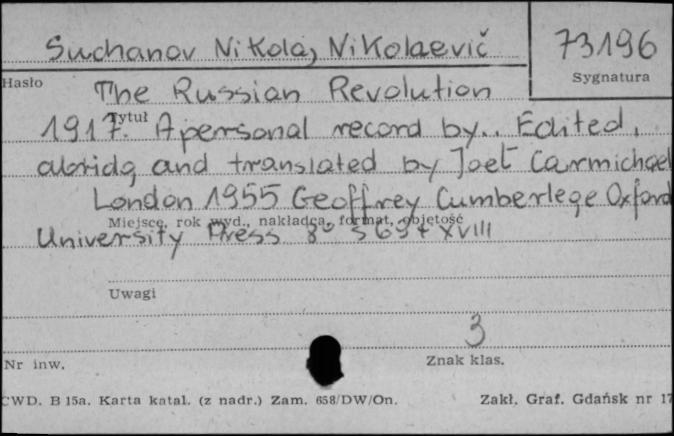 Suchanov Nikolaj Nikolaevič
73196
Hasło
Sygnatura
The Russian Revolution
Tytuł
1917. A personal record by.. Edited,
abridg and translated by Joel Carmichael
London 1955 Geoffrey Cumberlege Oxford
Miejsce, rok wyd., nakładca, format, objętość
University Press 8° s 691 + XVIII
Uwagi
3
Nr inw.
Znak klas.
CWD. B 15a. Karta katal. (z nadr.) Zam. 658/DW/On.
Zakł. Graf. Gdańsk nr 17